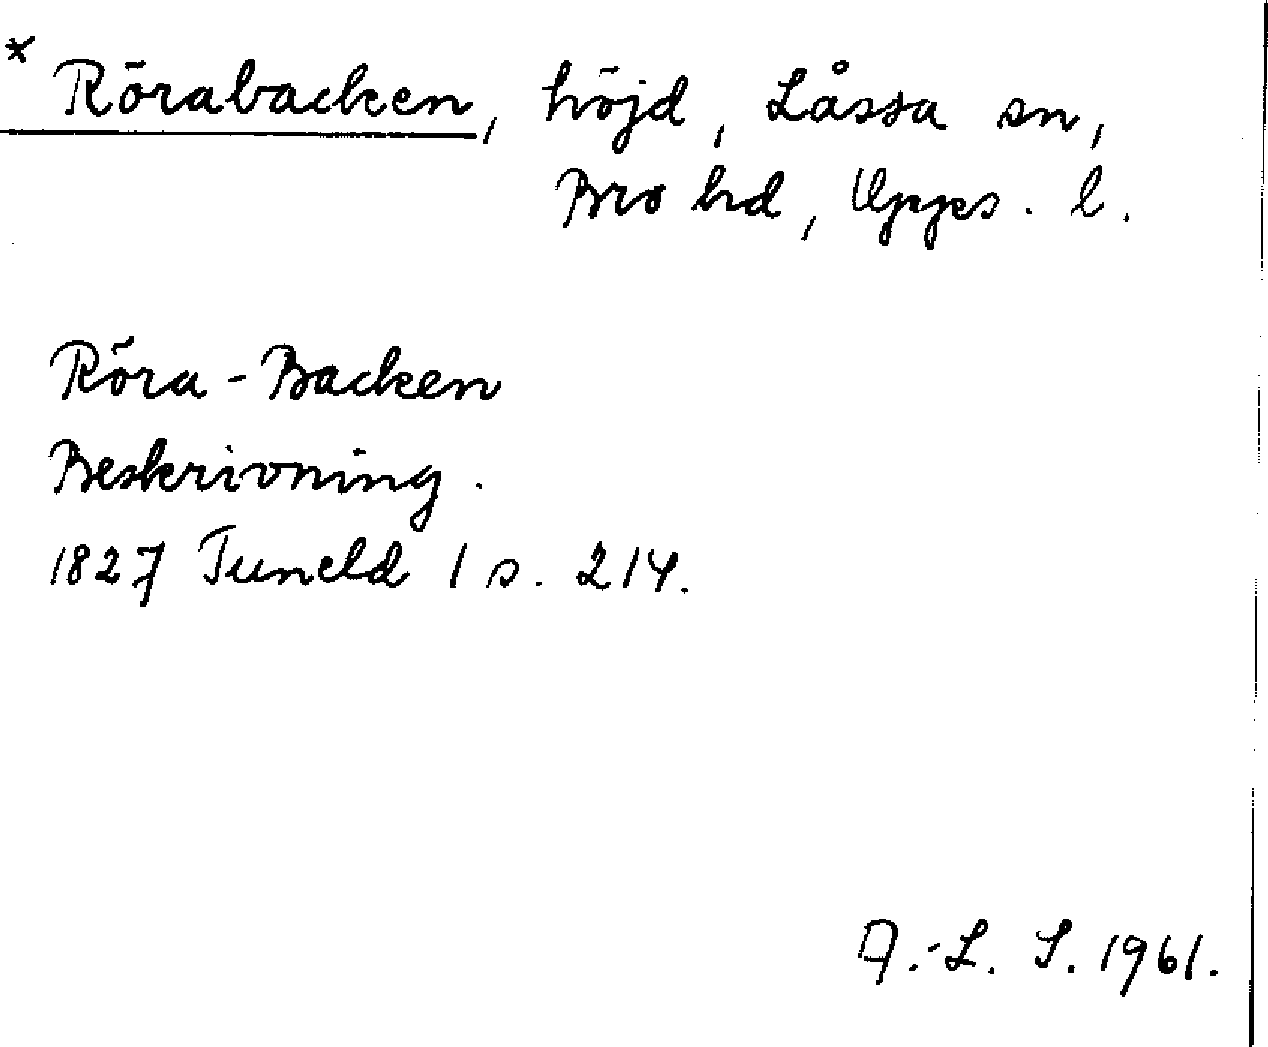 * Rörabacken, höjd, Låssa sn,
Bro hd, Upps. l.
Röra-Backen
Beskrivning.
1827 Tuneld 1 s. 214.
A.-L. S. 1961.